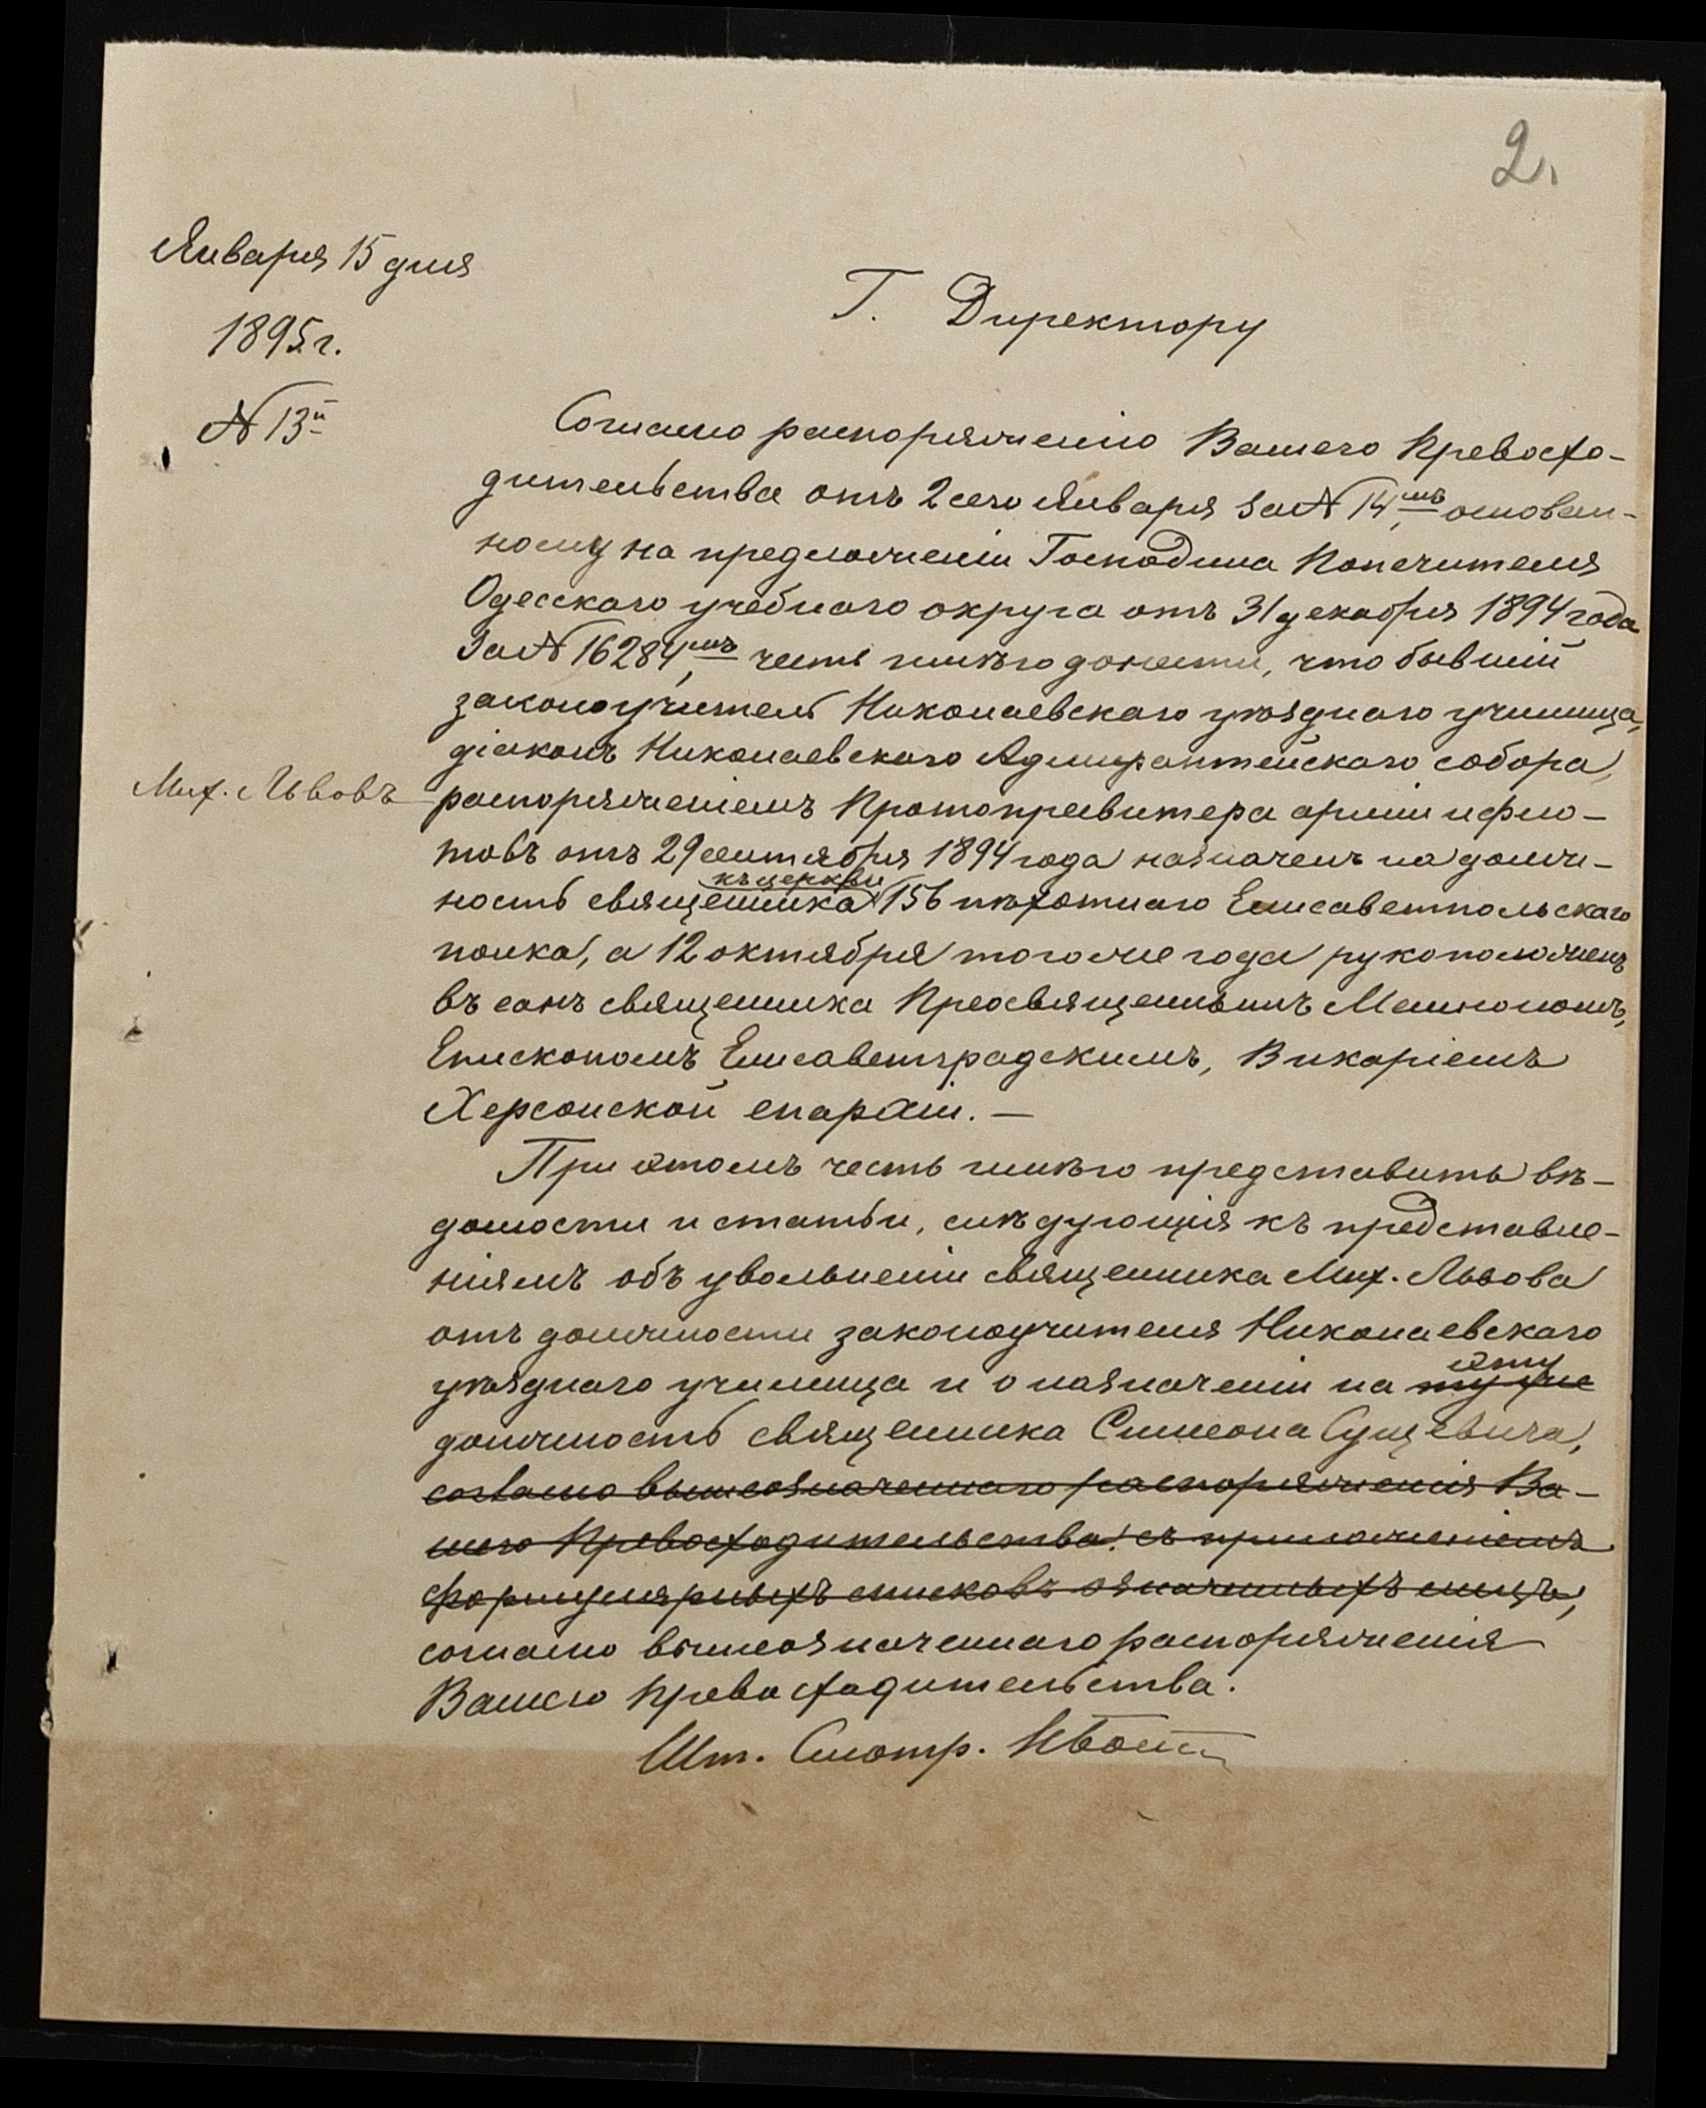 2.
Января 15 дня
1895 г.
№ 13й
Г. Директору
Согласно распоряженію Вашего Превосхо-
дительства отъ 2 сего Января за № 14,мъ основан-
ному на предложеніи Господина Попечителя
Одесскаго учебнаго округа отъ 31 декабря 1894 года
за № 16284,мъ честь имѣю донести, что бывшій
законоучитель Николаевскаго уѣзднаго училища,
діаконъ Николаевскаго Адмиралтейскаго собора,
Мих. Львовъ
распоряженіемъ Протопресвитера арміи и фло-
товъ отъ 29 сентября 1894 года назначенъ на долж-
къ церкви
ность священника 156 пѣхотнаго Елисаветпольскаго
полка, а 12 октября того же года рукоположенъ
въ санъ священника Преосвященнымъ
Епископомъ Елисаветградскимъ, Викаріемъ
Херсонской епархіи. —
При этомъ честь имѣю представить вѣ-
домости и статьи, слѣдующія къ представле-
ніямъ объ увольненіи священника Мих. Львова
отъ должности законоучителя Николаевскаго
эту
уѣзднаго училища и о назначеніи на ту же
должность священника Симеона Сущевича,
согласно вышеозначеннаго распоряженія Ва-
шего Превосходительства. съ приложеніемъ
формулярныхъ списковъ означенныхъ лицъ,
согласно вышеозначеннаго распоряженія
Вашего Превосходительства.
Шт. Смотр.